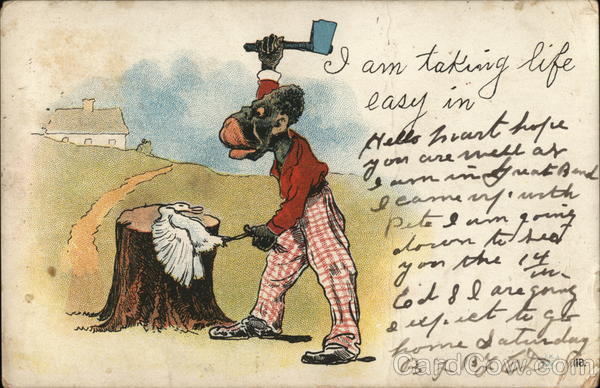 I am taking life
easy in
Hello heart hope
you are well as
I am in Great Bend
I came up with
Pete I am going
down to see
you the 14
in
Ed & I are going
I expect to go
home Saturday
CardCow.com